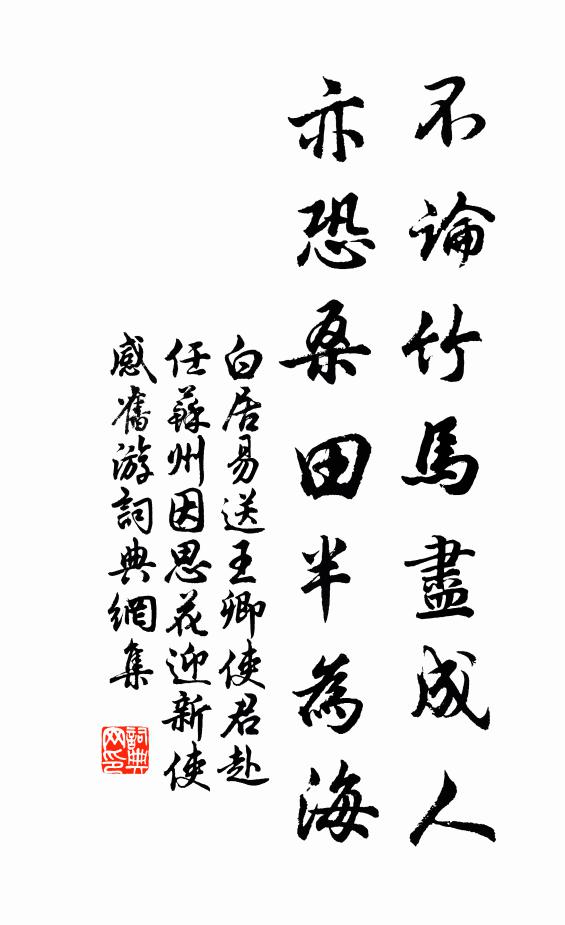 不論竹馬盡成人
亦恐桑田半為海
白居易送王卿使君赴
任蘇州因思花迎新使
感舊游詞典網集
詞典
网印